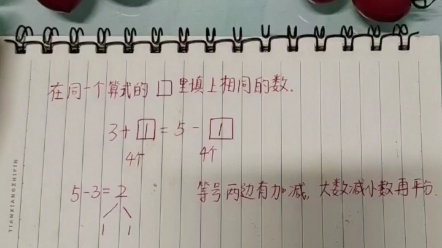 在同一个算式的 □ 里填上相同的数.
3+1=5-1
4个 4个
5-3=2 等号两边有加减,大数减小数再平分.
1 1
TIANXIANGZHIPIN